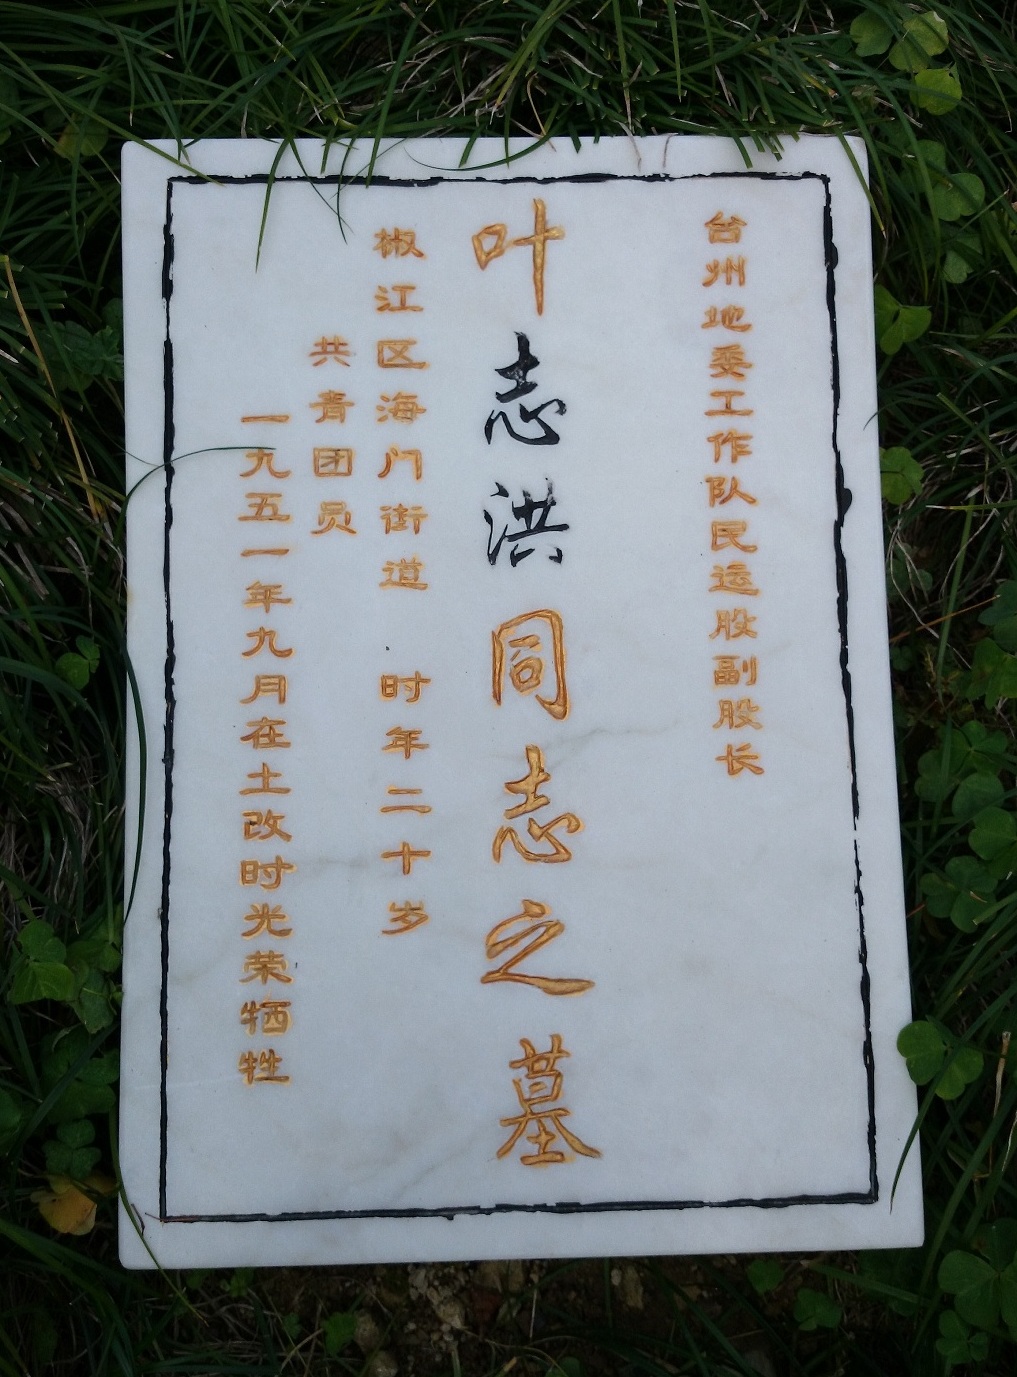 台州地委工作队民运股副股长
叶志洪同志之墓
椒江区海门街道 时年二十岁
共青团员
一九五一年九月在土改时光荣牺牲